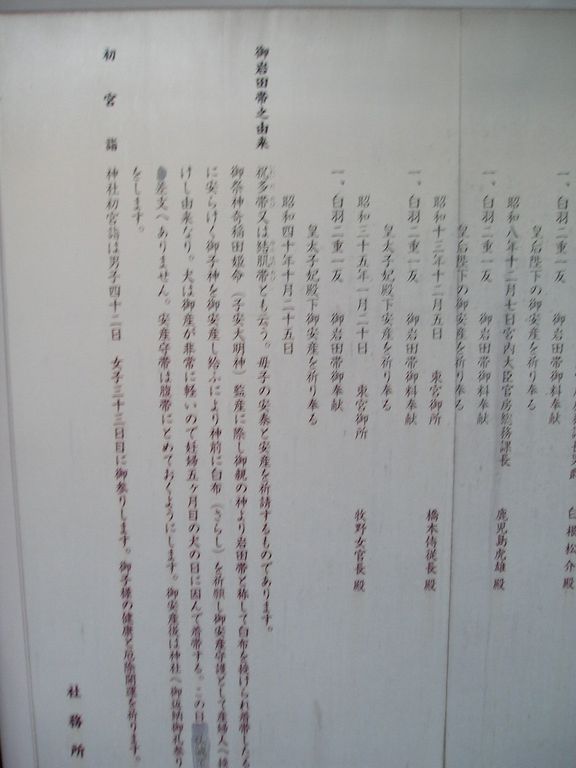 一、白羽二重一反　御岩田帯御料奉献
皇后陛下の御安産を祈り奉る
昭和八年十二月七日宮内大臣官房総務課長　鹿児島虎雄殿
一、白羽二重一反　御岩田帯御料奉献
皇后陛下の御安産を祈り奉る
昭和十三年十二月五日　東宮御所　橋本侍従長殿
一、白羽二重一反　御岩田帯御料奉献
皇太子妃殿下御安産を祈り奉る
昭和三十五年一月二十日　東宮御所　牧野女官長殿
一、白羽二重一反　御岩田帯御奉献
皇太子妃殿下御安産を祈り奉る
昭和四十年十月二十五日
御岩田帯之由来
祝多帯又は結肌帯とも云う。母子の安泰と安産を祈請するものであります。
御祭神奇稲田姫命（子安大明神）監産に際し御親の神より岩田帯と称して白布を授けられ着帯したる
に安らけく御子神を御安産し給ふにより神前に白布（さらし）を祈願し御安産守護として産婦人へ授
けし由来なり。犬は御産が非常に軽いので妊婦五ヶ月目の犬の日に因んで着帯する。この日
差支へありません。安産守帯は腹帯にとめておくようにします。御安産後は神社へ御返納御礼参り
をします。
初宮詣　神社初宮詣は男子四十二日　女子三十三日目に御参りします。御子様の健康と厄除開運を祈ります。
社務所